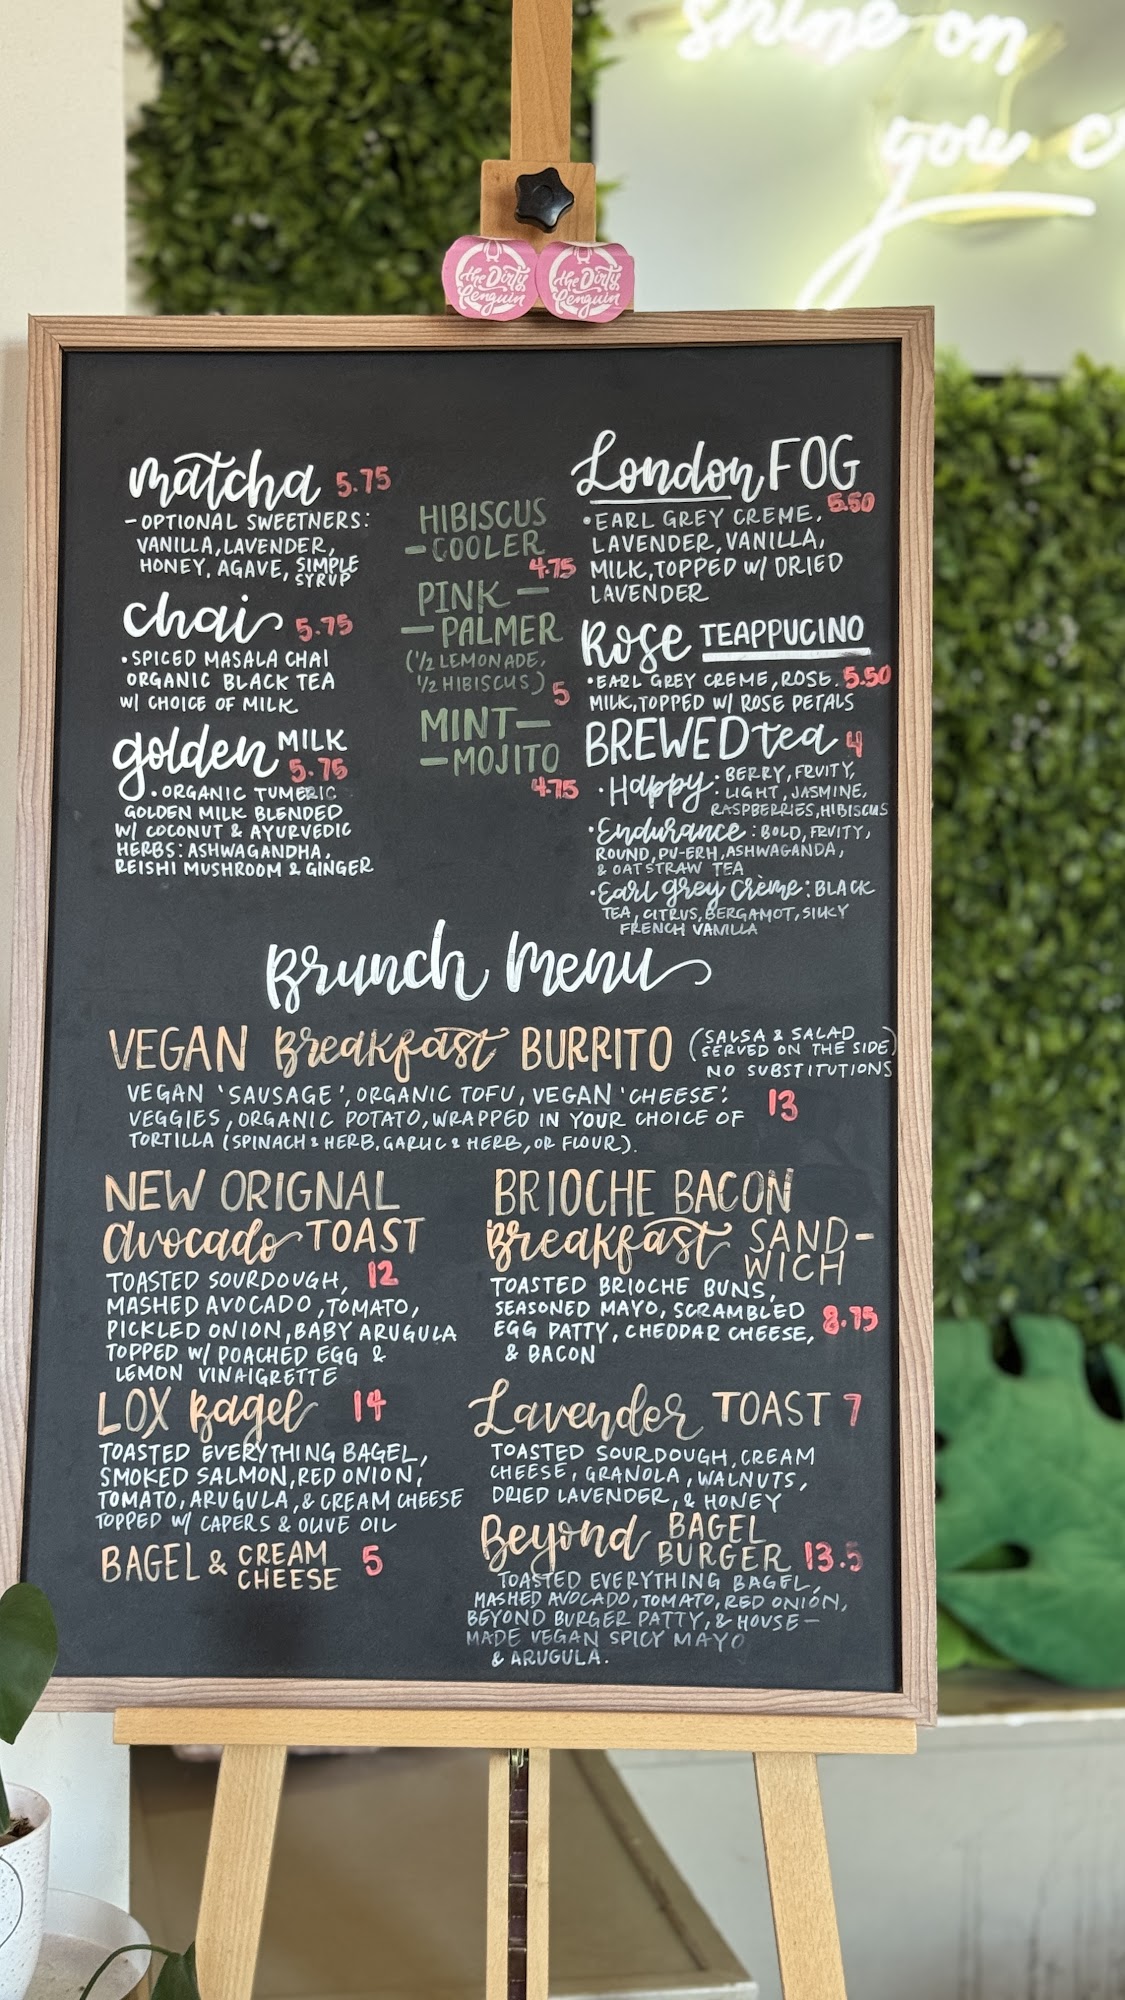 shine on
you
the Dirty Penguin
the Dirty Penguin
matcha 5.75
- OPTIONAL SWEETNERS:
VANILLA, LAVENDER,
HONEY, AGAVE, SIMPLE SYRUP
chai 5.75
• SPICED MASALA CHAI
ORGANIC BLACK TEA
W/ CHOICE OF MILK
golden MILK 5.75
• ORGANIC TUMERIC
GOLDEN MILK BLENDED
W/ COCONUT & AYURVEDIC
HERBS: ASHWAGANDHA,
REISHI MUSHROOM & GINGER
HIBISCUS
- COOLER
4.75
PINK -
- PALMER
(1/2 LEMONADE,
1/2 HIBISCUS) 5
MINT -
- MOJITO
4.75
London FOG
5.50
• EARL GREY CREME,
LAVENDER, VANILLA,
MILK, TOPPED W/ DRIED
LAVENDER
Rose TEAPPUCINO
• EARL GREY CREME, ROSE. 5.50
MILK, TOPPED W/ ROSE PETALS
BREWED tea 4
• Happy: BERRY, FRUITY,
LIGHT, JASMINE,
RASPBERRIES, HIBISCUS
• Endurance: BOLD, FRUITY,
ROUND, PU-ERH, ASHWAGANDA,
& OATSTRAW TEA
• Earl grey Crème: BLACK
TEA, CITRUS, BERGAMOT, SILKY
FRENCH VANILLA
Brunch Menu
VEGAN Breakfast BURRITO (SALSA & SALAD
SERVED ON THE SIDE)
NO SUBSTITUTIONS
VEGAN 'SAUSAGE', ORGANIC TOFU, VEGAN 'CHEESE', 13
VEGGIES, ORGANIC POTATO, WRAPPED IN YOUR CHOICE OF
TORTILLA (SPINACH & HERB, GARLIC & HERB, OR FLOUR).
NEW ORIGNAL
Avocado TOAST
TOASTED SOURDOUGH, 12
MASHED AVOCADO, TOMATO,
PICKLED ONION, BABY ARUGULA
TOPPED W/ POACHED EGG &
LEMON VINAIGRETTE
LOX Bagel 14
TOASTED EVERYTHING BAGEL,
SMOKED SALMON, RED ONION,
TOMATO, ARUGULA, & CREAM CHEESE
TOPPED W/ CAPERS & OLIVE OIL
BAGEL & CREAM CHEESE 5
BRIOCHE BACON
Breakfast SAND-
WICH
TOASTED BRIOCHE BUNS,
SEASONED MAYO, SCRAMBLED 8.75
EGG PATTY, CHEDDAR CHEESE,
& BACON
Lavender TOAST 7
TOASTED SOURDOUGH, CREAM
CHEESE, GRANOLA, WALNUTS,
DRIED LAVENDER, & HONEY
Beyond BAGEL BURGER 13.5
TOASTED EVERYTHING BAGEL,
MASHED AVOCADO, TOMATO, RED ONION,
BEYOND BURGER PATTY, & HOUSE-
MADE VEGAN SPICY MAYO
& ARUGULA.